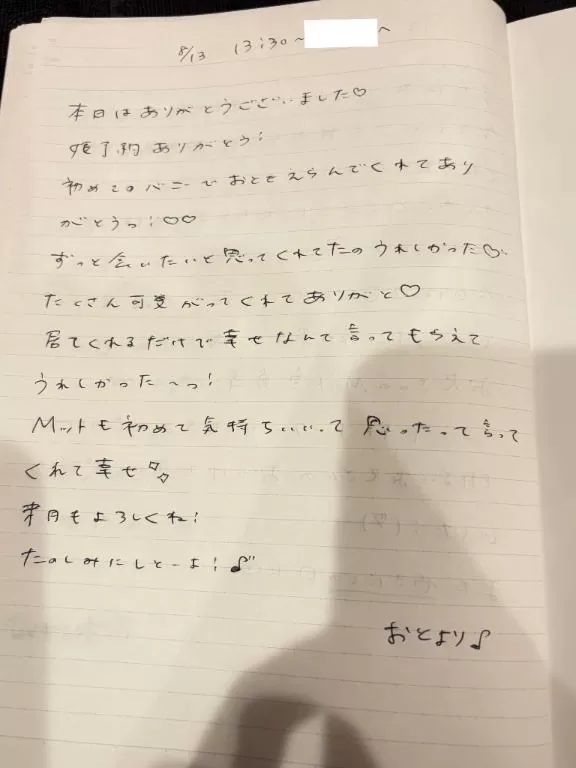 8/13 13:30〜 へ
本日はありがとうございました♡
予約ありがとう!
初めてのバニーでおとをえらんでくれてあり
がとうっ!♡♡
ずっと会いたいと思ってくれてたのうれしかった♡
たくさん可愛がってくれてありがと♡
居てくれるだけで幸せなんて言ってもらえて
うれしかった〜っ!
Mットも初めて気持ちいいって思ったって言って
くれて幸せ
来月もよろしくね!
たのしみにしとーよ!♪
おとより♪